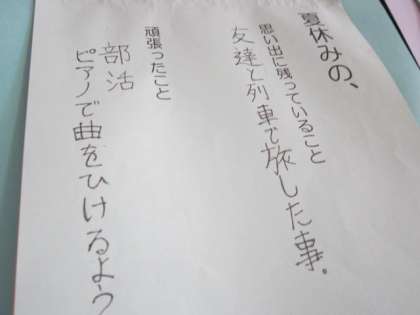 夏休みの、
思い出に残っていること
友達と列車で旅した事。
頑張ったこと
部活
ピアノで曲をひけるよう